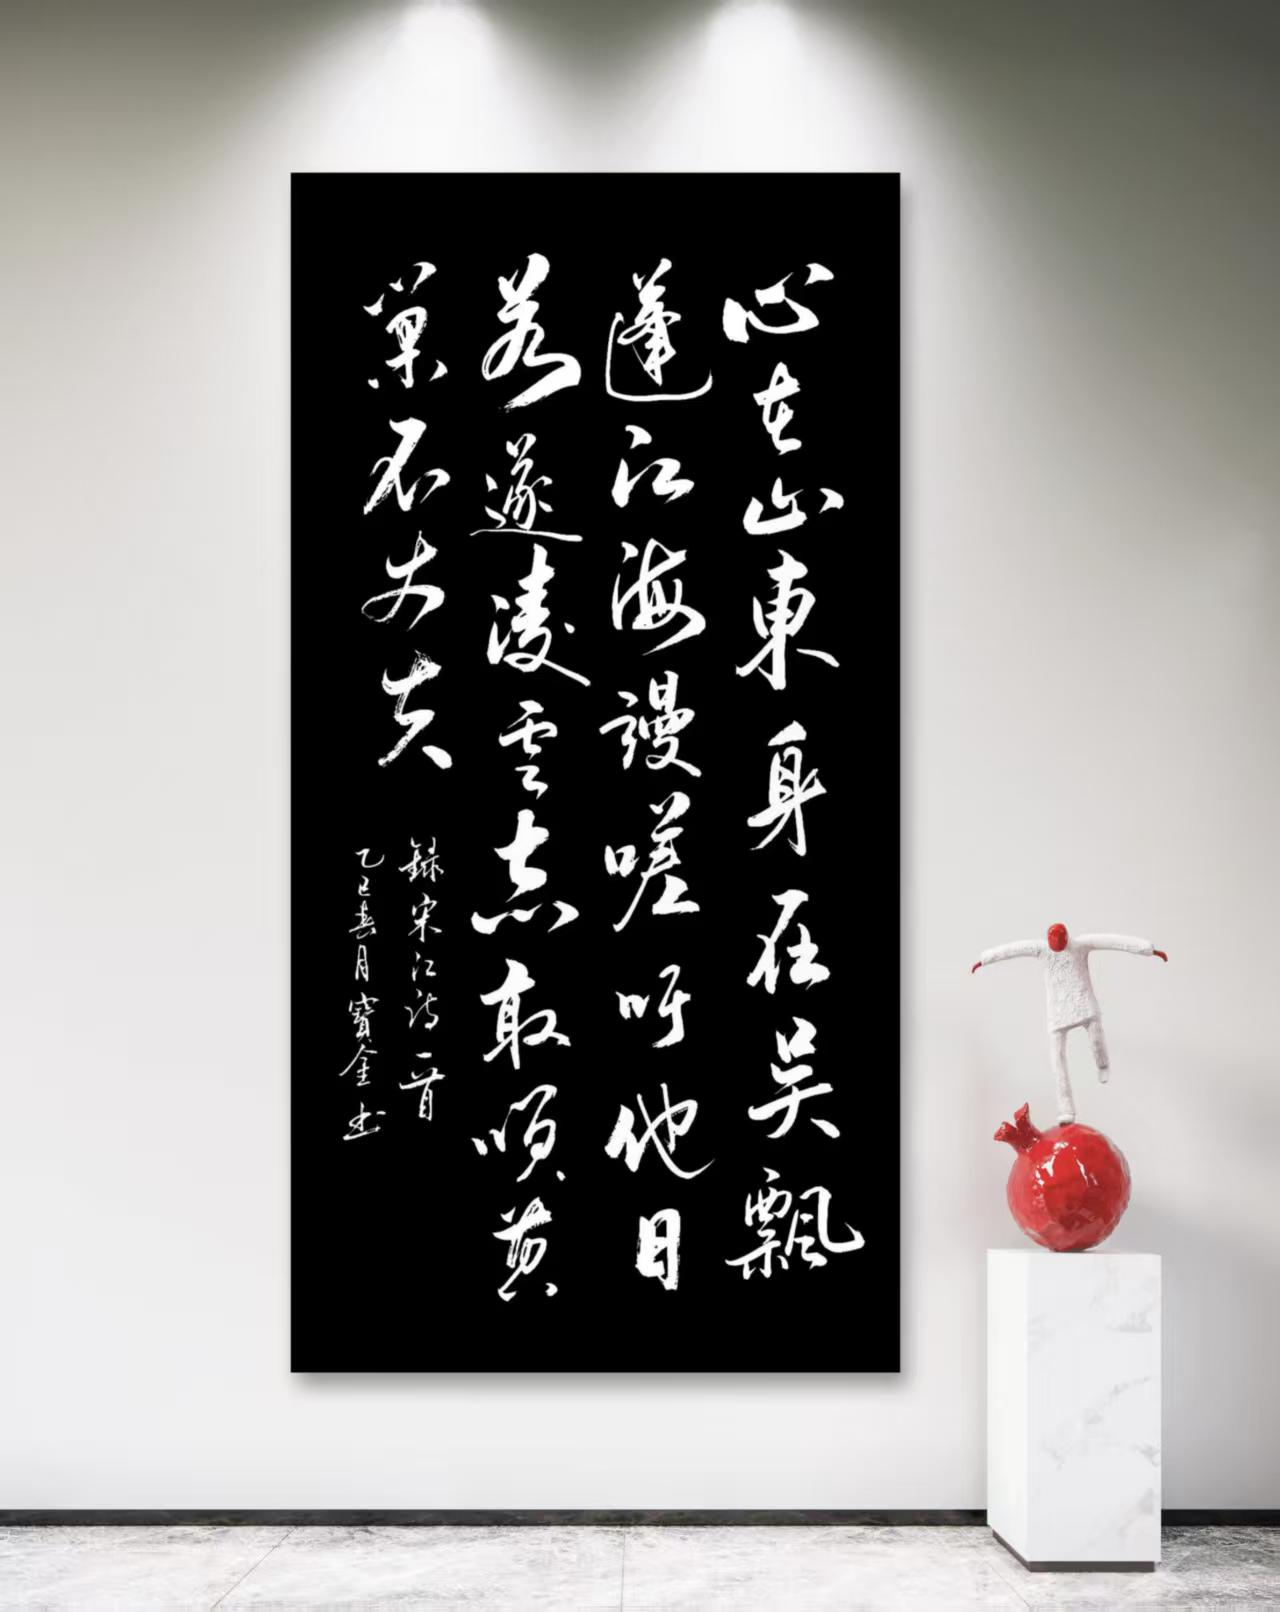 心在山東身在吳飄
蓬江海謾嗟吁他日
若遂凌雲志敢黃
巢不丈夫
錄宋江詩一首
乙巳春月寶金书